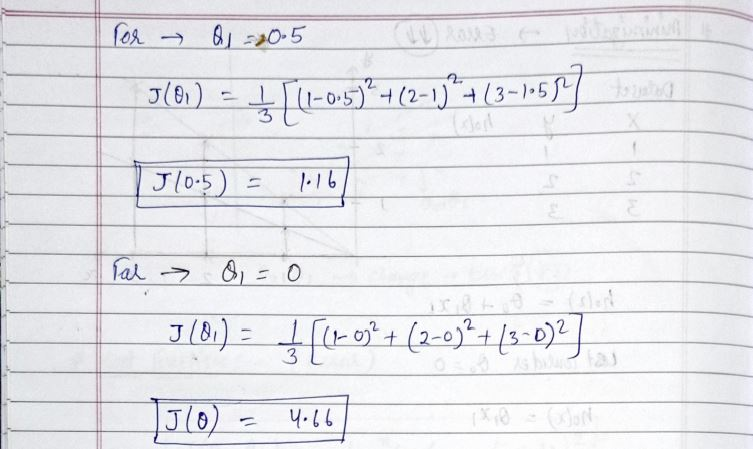 For → θ₁ = 0.5
J(θ₁) = 1/3 [(1-0.5)² + (2-1)² + (3-1.5)²]
J(0.5) = 1.16
For → θ₁ = 0
J(θ₁) = 1/3 [(1-0)² + (2-0)² + (3-0)²]
J(θ) = 4.66